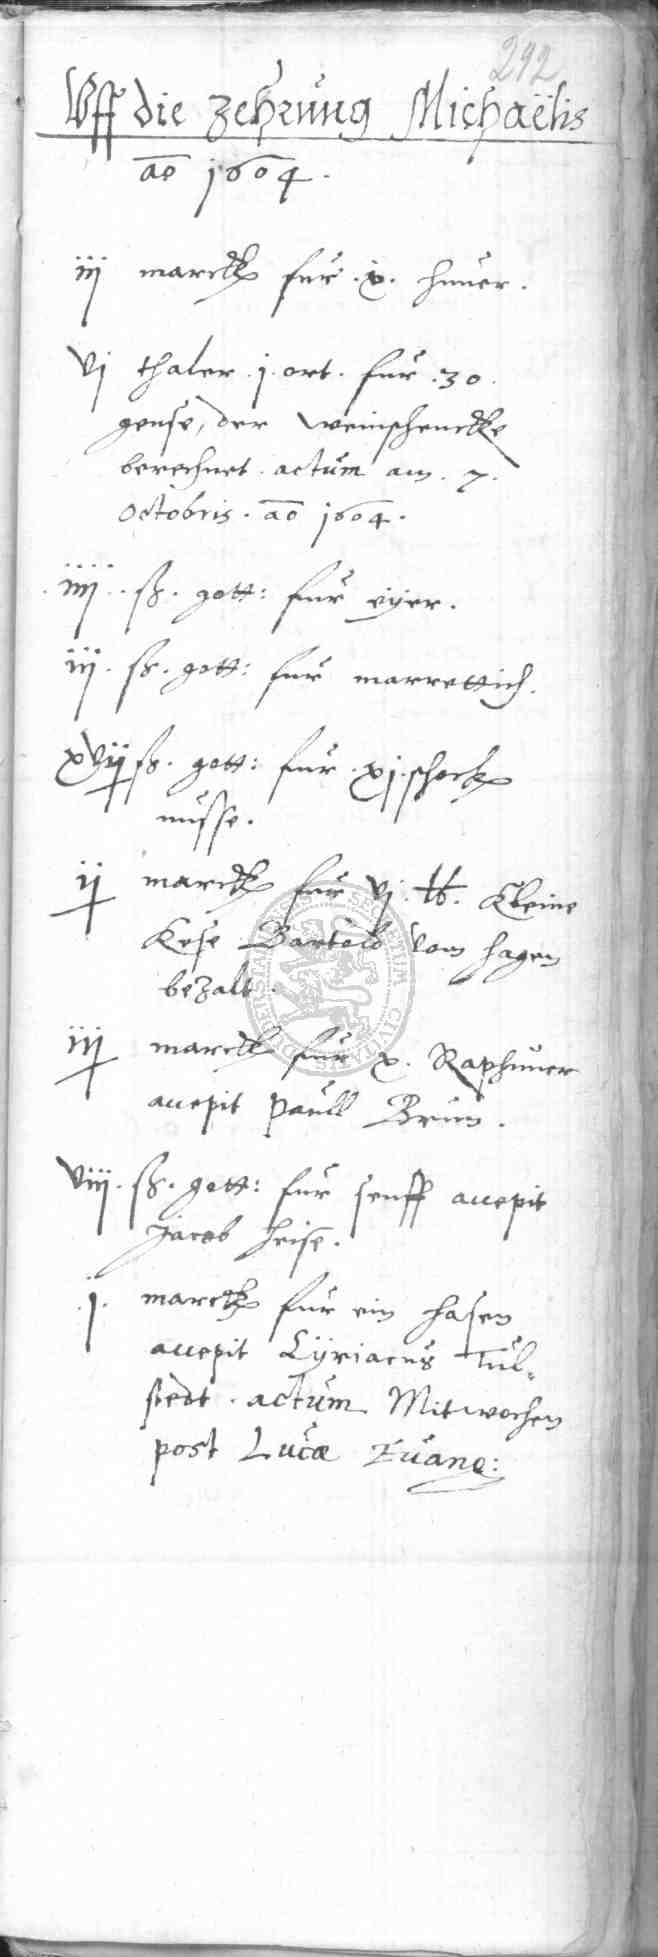 292
Vff die zehrung Michaëlis
ao 1604.
iij marck fur .x. huner.
vj thaler .j. ort. fur .30.
gense, der weinschencke
berechnet. actum am .7.
octobris. ao 1604.
iiij. ß. gott: fur eyer.
iij. ß. gott: fur marrettich.
xvij ß. gott: fur .xj. schock
nusse.
ij marck fur vj. ℔. Kleine
Kese Bartold vom hagen
bezalt.
iij marck fur x. Raphuner
accepit Paull Brun.
viij. ß. gott: fur senff accepit
Jacob heise.
.j. marck fur ein hasen
accepit Cÿriacus Tul-
stedt. actum Mitwochen
post Lucæ Euang:
SECRETUM CIVITATIS